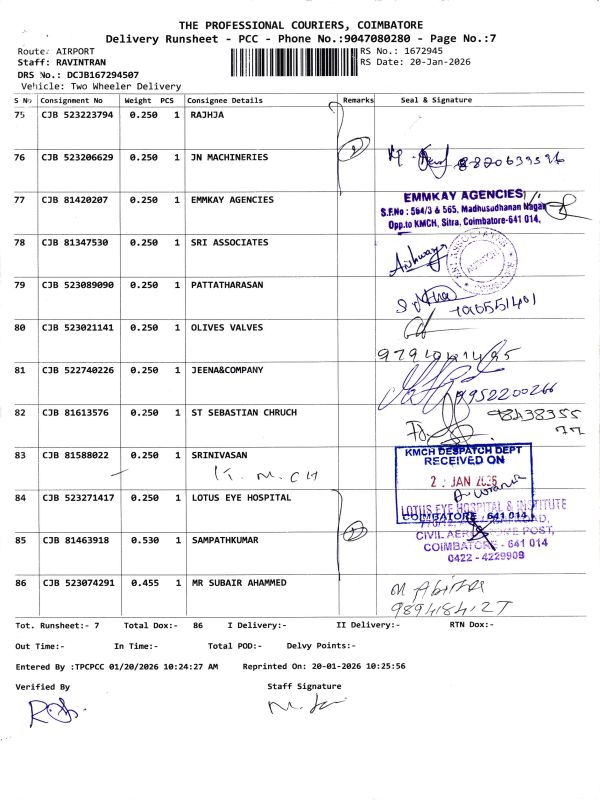 THE PROFESSIONAL COURIERS, COIMBATORE
Delivery Runsheet - PCC - Phone No.:9047080280 - Page No.:7
Route: AIRPORT
RS No.: 1672945
Staff: RAVINTRAN
RS Date: 20-Jan-2026
DRS No.: DCJB167294507
Vehicle: Two Wheeler Delivery
S No Consignment No Weight PCS Consignee Details Remarks Seal & Signature
75 CJB 523223794 0.250 1 RAJHJA
76 CJB 523206629 0.250 1 JN MACHINERIES
77 CJB 81420207 0.250 1 EMMKAY AGENCIES
EMMKAY AGENCIES
S.F.No : 564/3 & 565, Madhusudhanan Nagar
Opp.to KMCH, Sitra, Coimbatore-641 014.
78 CJB 81347530 0.250 1 SRI ASSOCIATES
79 CJB 523089090 0.250 1 PATTATHARASAN
80 CJB 523021141 0.250 1 OLIVES VALVES
81 CJB 522740226 0.250 1 JEENA&COMPANY
9952200266
82 CJB 81613576 0.250 1 ST SEBASTIAN CHRUCH
9843835577
83 CJB 81588022 0.250 1 SRINIVASAN
K.M.CH
KMCH DESPATCH DEPT
RECEIVED ON
2 JAN
84 CJB 523271417 0.250 1 LOTUS EYE HOSPITAL
LOTUS EYE HOSPITAL & INSTITUTE
COIMBATORE - 641 014
85 CJB 81463918 0.530 1 SAMPATHKUMAR
COIMBATORE - 641 014
0422 - 4229909
86 CJB 523074291 0.455 1 MR SUBAIR AHAMMED
Tot. Runsheet:- 7 Total Dox:- 86 I Delivery:- II Delivery:- RTN Dox:-
Out Time:- In Time:- Total POD:- Delvy Points:-
Entered By :TPCPCC 01/20/2026 10:24:27 AM Reprinted On: 20-01-2026 10:25:56
Verified By Staff Signature